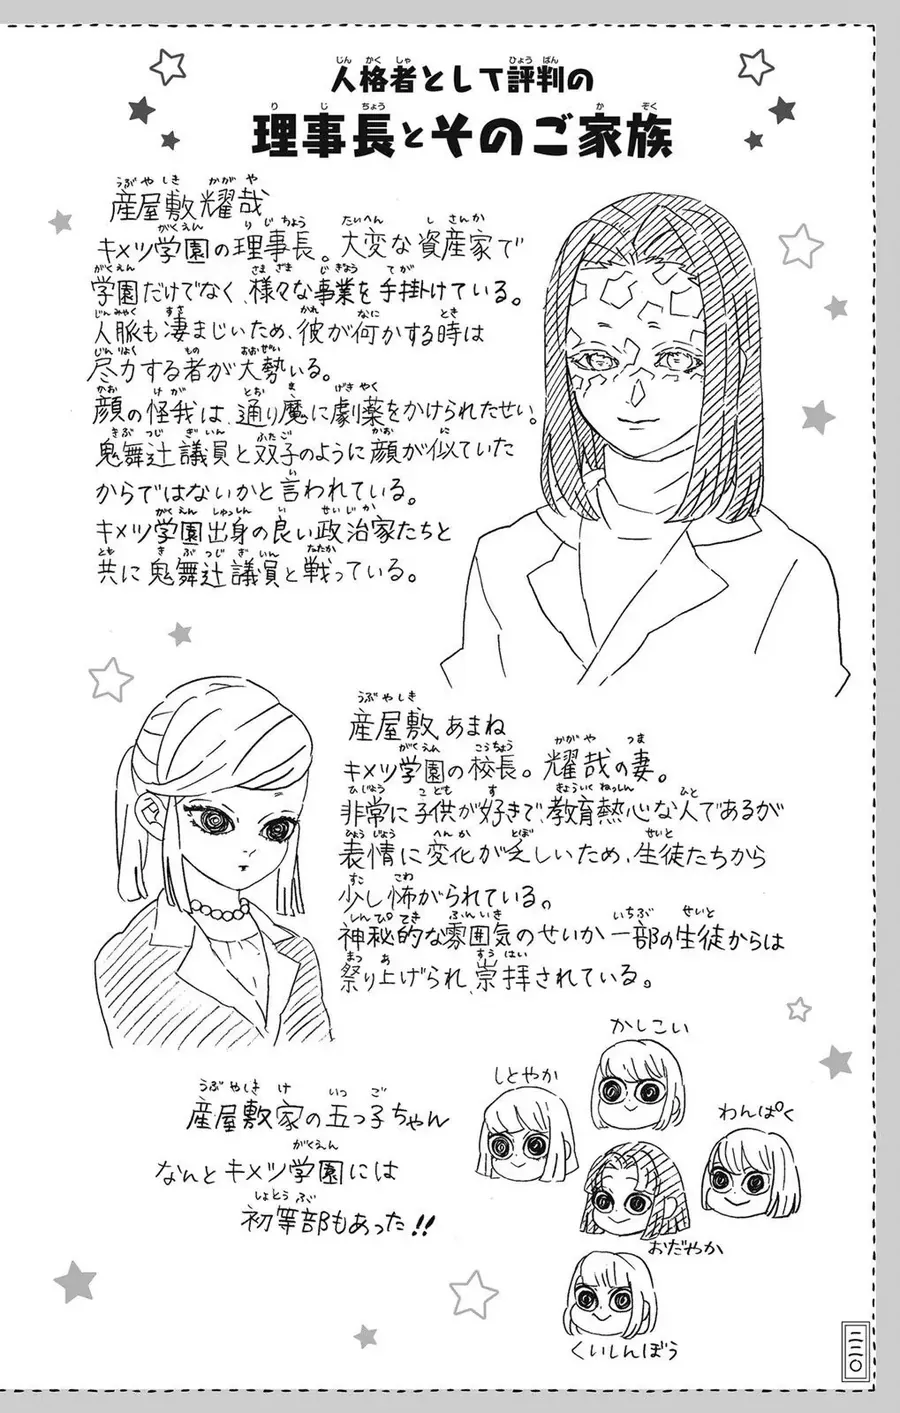 人格者として評判の
理事長とそのご家族
産屋敷耀哉
キメツ学園の理事長。大変な資産家で
学園だけでなく、様々な事業を手掛けている。
人脈も凄まじいため、彼が何かする時は
尽力する者が大勢いる。
顔の怪我は、通り魔に劇薬をかけられたせい。
鬼舞辻議員と双子のように顔が似ていた
からではないかと言われている。
キメツ学園出身の良い政治家たちと
共に鬼舞辻議員と戦っている。
産屋敷あまね
キメツ学園の校長。耀哉の妻。
非常に子供が好きで、教育熱心な人であるが
表情に変化が乏しいため、生徒たちから
少し怖がられている。
神秘的な雰囲気のせいか一部の生徒からは
祭り上げられ、崇拝されている。
産屋敷家の五つ子ちゃん
なんとキメツ学園には
初等部もあった!!
かしこい
しとやか
わんぱく
おだやか
くいしんぼう
二二〇